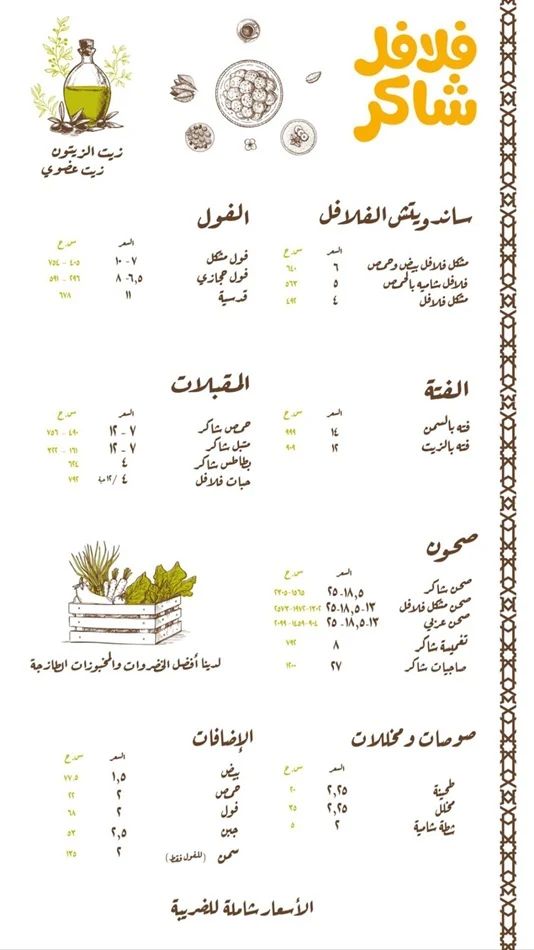 فلافل
شاكر
زيت الزيتون
زيت عضوي
ساندويتش الفلافل
السعر س.ح
مشكل فلافل بيض وحمص ٦ ٦٤٠
فلافل شاميه بالحمص ٥ ٥٦٣
مشكل فلافل ٤ ٤٩٢
الفول
السعر س.ح
فول مشكل ٧ - ١٠ ٤٠٥ - ٧٥٤
فول حجازي ٦,٥ - ٨ ٢٩٦ - ٥٩١
قدسية ١١ ٦٧٨
الفتة
السعر س.ح
فته بالسمن ١٤ ٩٩٩
فته بالزيت ١٢ ٩٠٩
المقبلات
السعر س.ح
حمص شاكر ٧ - ١٢ ٤٩٠ - ٧٥٦
متبل شاكر ٧ - ١٢ ١٦١ - ٣٢٢
بطاطس شاكر ٤ ٦٢٤
حبات فلافل ٤ /١٢حبة ٧٩٢
صحون
السعر س.ح
صحن شاكر ١٨,٥ - ٢٥ ١٥٦٥-٢٣٠٥
صحن مشكل فلافل ١٣-١٨,٥-٢٥ ١٣٠٢-١٩٧٢-٢٥٧٣
صحن عربي ١٣-١٨,٥-٢٥ ٩٠٤-١٤٥٩-٢٠٩٩
تغميسة شاكر ٨ ٧٩٢
صاجيات شاكر ٢٧ ١٢٠٠
لدينا أفضل الخضروات والمخبوزات الطازجة
صوصات ومخللات
السعر س.ح
طحينة ٢,٢٥ ٢٠
مخلل ٢,٢٥ ٣٥
شطة شامية ٢ ٥
الإضافات
السعر س.ح
بيض ١,٥ ٧٧.٥
حمص ٢ ٢٢
فول ٢ ٦٨
جبن ٢,٥ ٥٣
سمن (للفول فقط) ٢ ١٣٥
الأسعار شاملة للضريبة